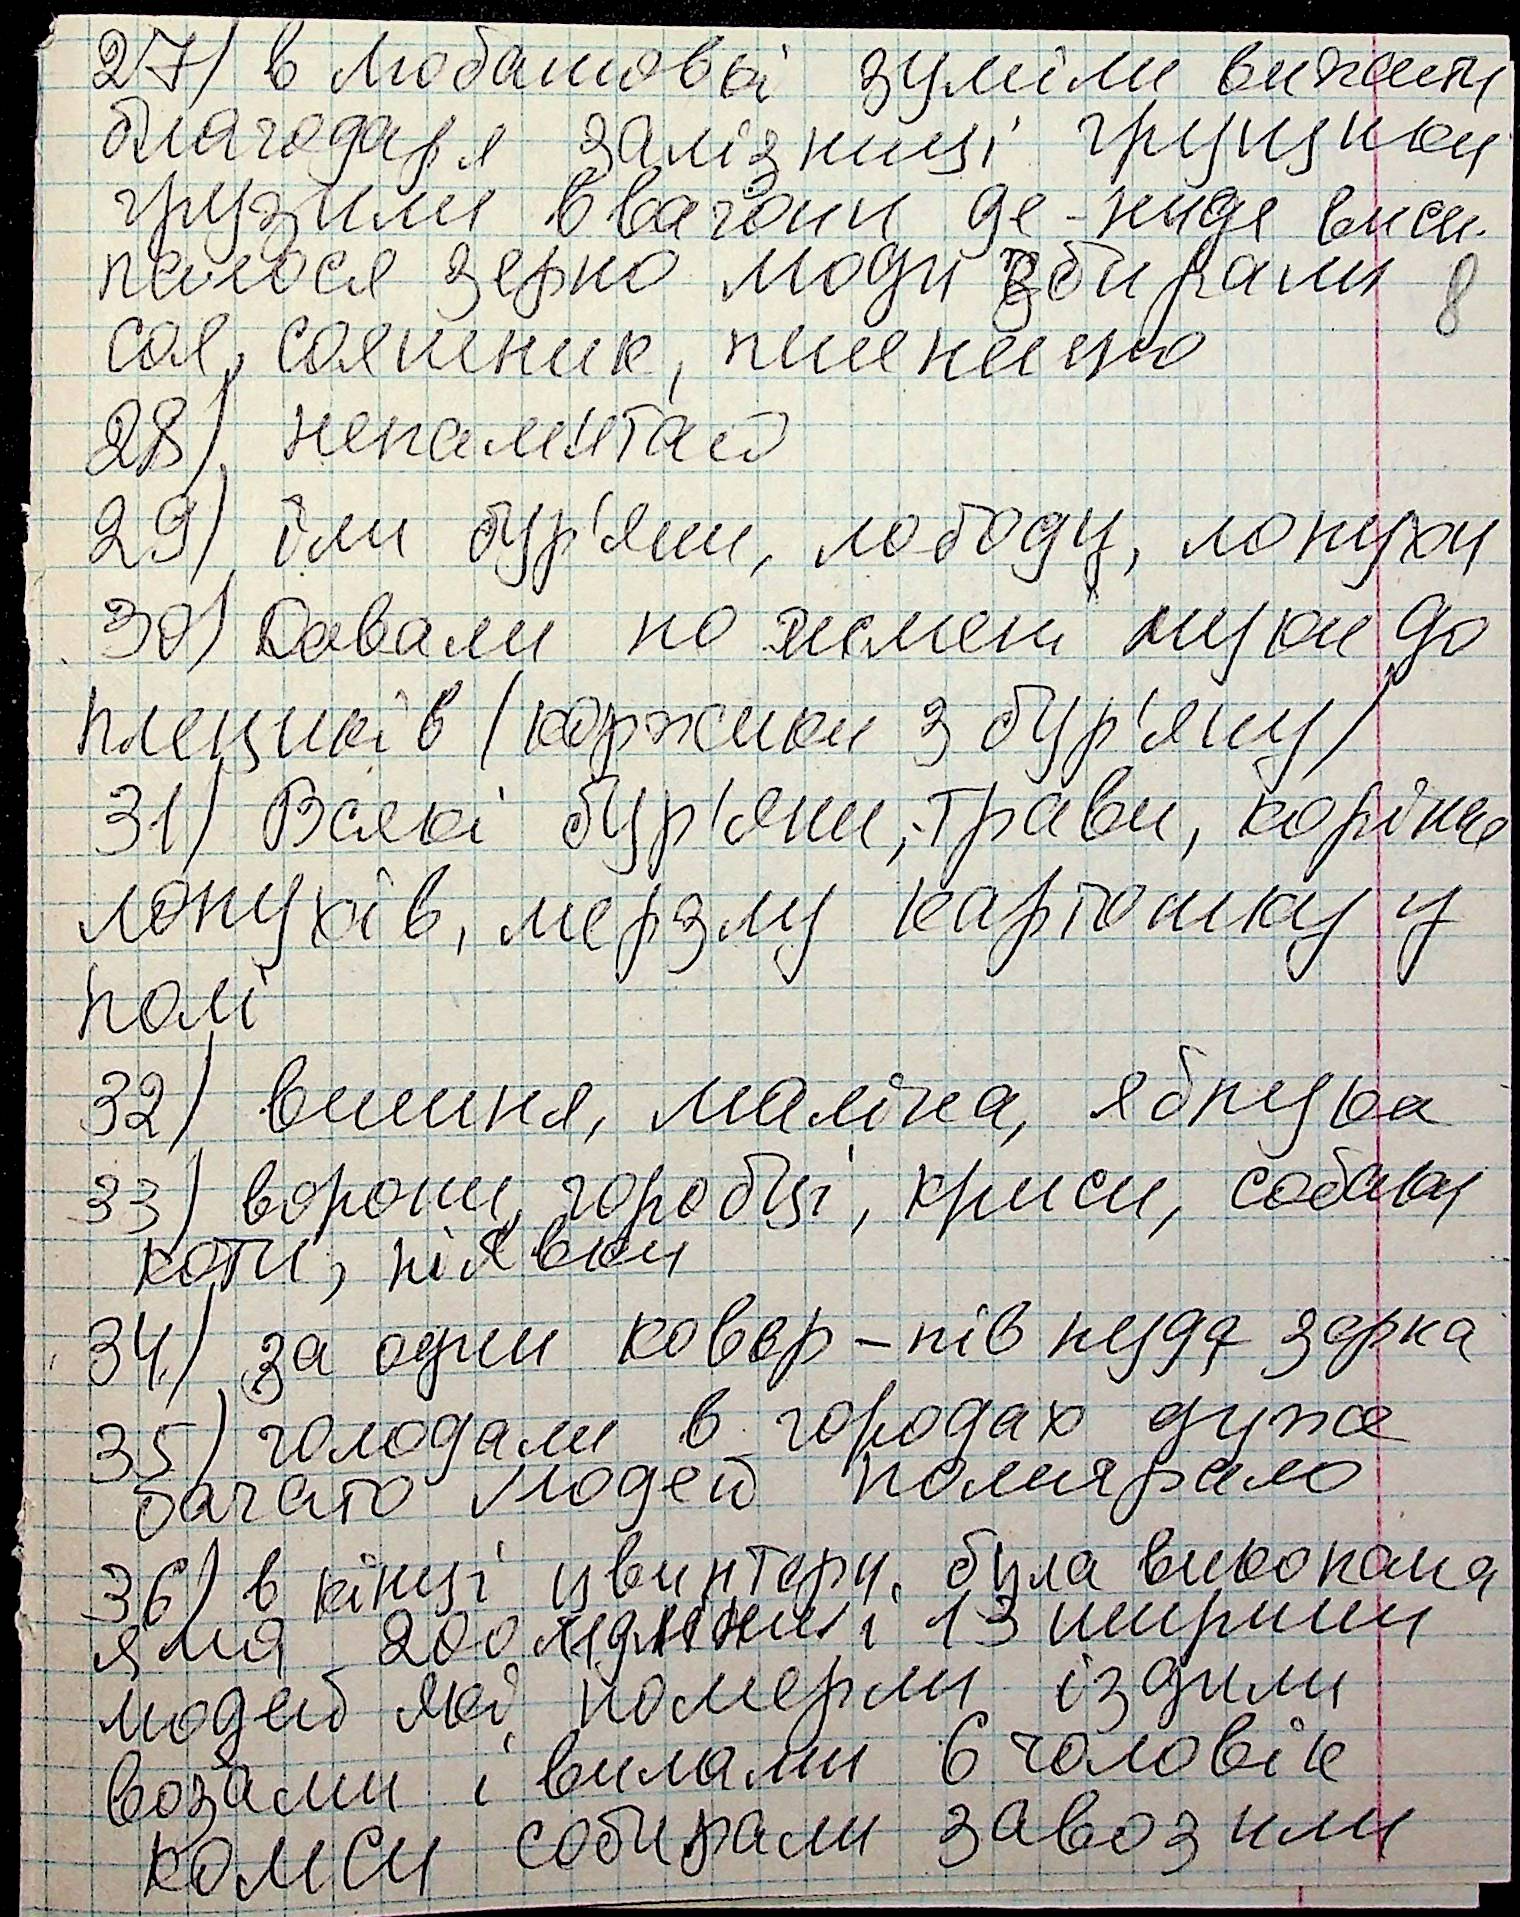 27) в Любашовці зуміли вижити
благодаря залізниці грузики
грузили в вагони де-нидя виси-
палося зерно люди збирали
соя, соняшник, пшеницю
8
28) непам'ятаю
29) їли бур'яни, лободу, лопухи
30) Давали по жмені муки до
плециків (коржики з бур'яну)
31) Всякі бур'яни, трави, коріння
лопухів, мерзлу картошку у
полі
32) вишня, маліна, яблука
33) ворони, горобці, криси, собаки
коти, піявки
34) за один ковер – пів пуда зерна
35) голодали в городах дуже
багато людей помирало
36) в кінці цвинтеру була викопана
яма 200 і 13 ширини
людей які померли їздили
возами і вилами 6 чоловік
комси собирали завозили